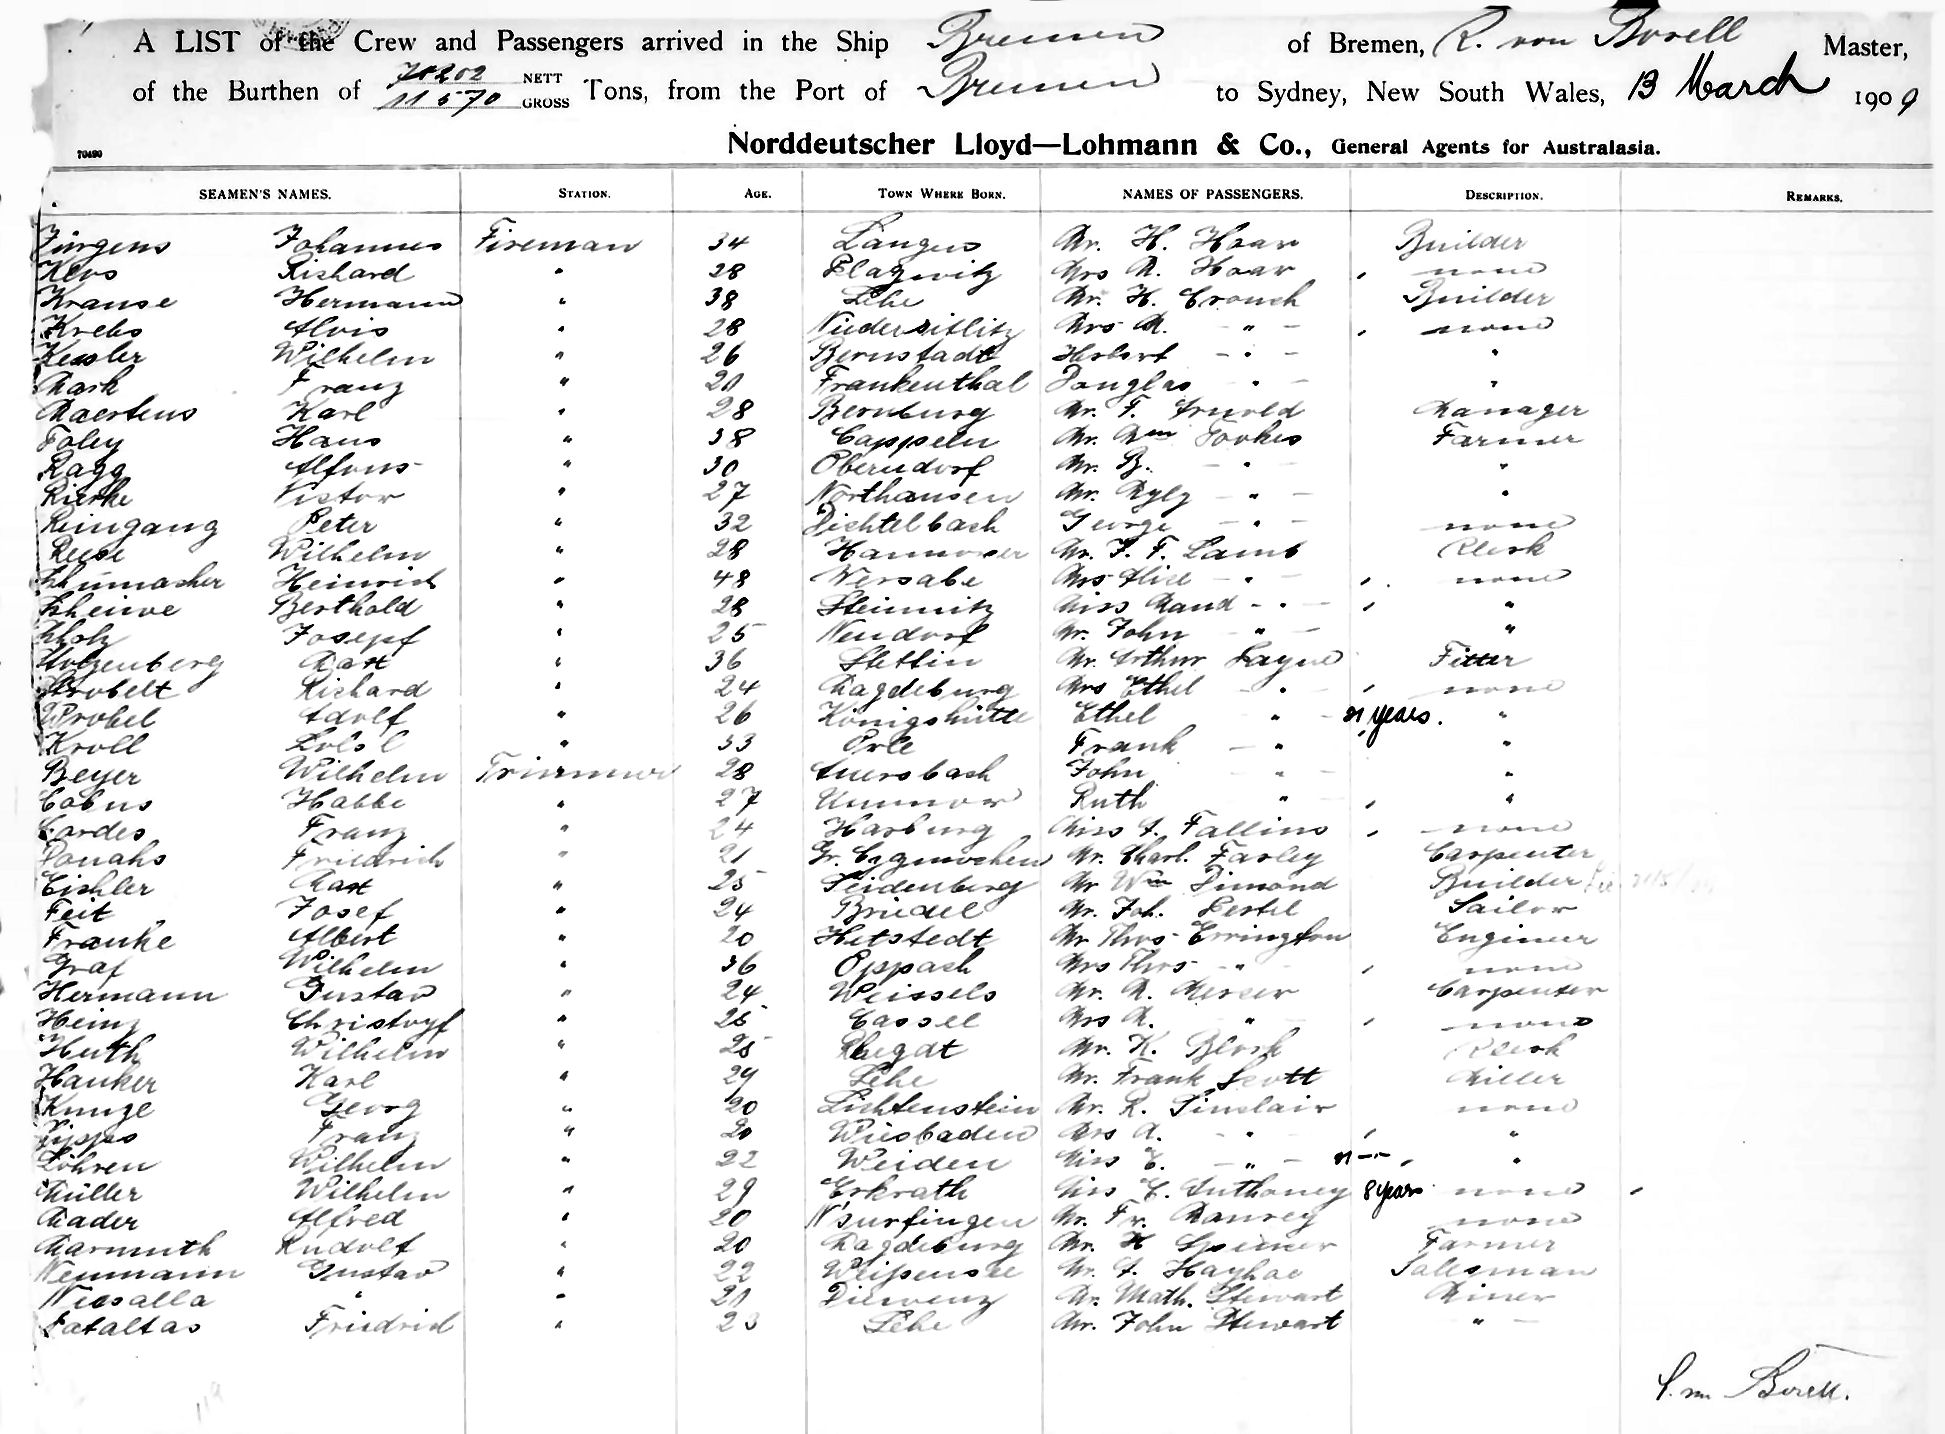 A LIST of the Crew and Passengers arrived in the Ship Bremen of Bremen, R. von Borell Master,
of the Burthen of NETT 11570 GROSS Tons, from the Port of Bremen to Sydney, New South Wales, 13 March 1909
Norddeutscher Lloyd—Lohmann & Co., General Agents for Australasia.
70490
SEAMEN'S NAMES. STATION. AGE. TOWN WHERE BORN. NAMES OF PASSENGERS. DESCRIPTION. REMARKS.
Jürgens Johannes Fireman 34 Langen Mr. H. Hoar Builder
Richard " 28 Plagwitz Mrs M. Hoar none
Krause Hermann " 38 Lehe Mr. H. Crouch Builder
Krebs Alois " 28 Niedersitlitz Mrs M. - " - none
Kessler Wilhelm " 26 Bernstadt Herbert - " - "
Mark Franz " 21 Frankenthal Douglas - " - "
Maertens Karl " 28 Bernburg Mr. F. Arnold Manager
Foley Hans " 38 Cappeln Mr. Wm Fookes Farmer
Ragg Alfons " 30 Oberndorf Mr. B. - " - "
Victor " 27 Northausen Mr. - " - "
Reingang Peter " 32 Dichtelbach George - " - none
Reese Wilhelm " 28 Hannover Mr. F. F. Lamb Clerk
Schumacher Heinrich " 48 Wersabe Mrs Alice - " - none
Berthold " 28 Steinnitz Miss Maud - " - "
Scholz Josepf " 25 Neudorf Mr. John - " - "
Holzenberg Max " 36 Stettin Mr. Arthur Payne Fitter
Strobelt Richard " 24 Magdeburg Mrs Ethel - " none
Wrobel Adolf " 26 Königshütte Ethel " - 21 years. "
Kroll " 33 Orle Frank - " "
Beyer Wilhelm Trimmer 28 Auersbach John " - "
Cobus Habbe " 27 Ummow Ruth " - "
Cordes Franz " 24 Harburg Miss A. Fallins none
Donahs Friedrich " 21 Gr. Mr. Charl. Farley Carpenter
Eichler Max " 25 Seidenberg Mr Wm Dimond Builder
Feit Josef " 24 Mr. Joh. Sailor
Franke Albert " 20 Hetstedt Mr Thos Errington Engineer
Graf Wilhelm " 36 Oppach Mrs Thos - " - none
Hermann Gustav " 24 Weissels Mr. M. Mercer Carpenter
Heinz Christopf " 25 Cassel Mrs M. " none
Huth Wilhelm " 25 Rhegdt Mr. K. Block Clerk
Hanker Karl " 29 Lehe Mr. Frank Scott Miller
Kunze Georg " 20 Lichtenstein Mr. R. Sinclair none
Lipps Franz " 20 Wiesbaden Mrs A. - " - "
Löhren Wilhelm " 22 Weiden Miss E. - " - "
Müller Wilhelm " 29 Erkrath Miss E. Anthoney 8 years none
Mader Alfred " 20 Mr. Fr. Manrey none
Marmuth Rudolf " 20 Magdeburg Mr. H Spencer Farmer
Neumann Gustav " 22 Weißensee Mr. Salesman
Niesalla " " 21 Mr. Math. Stewart Miner
Friedrich " 23 Lehe Mr. John Stewart - " -
Borell.